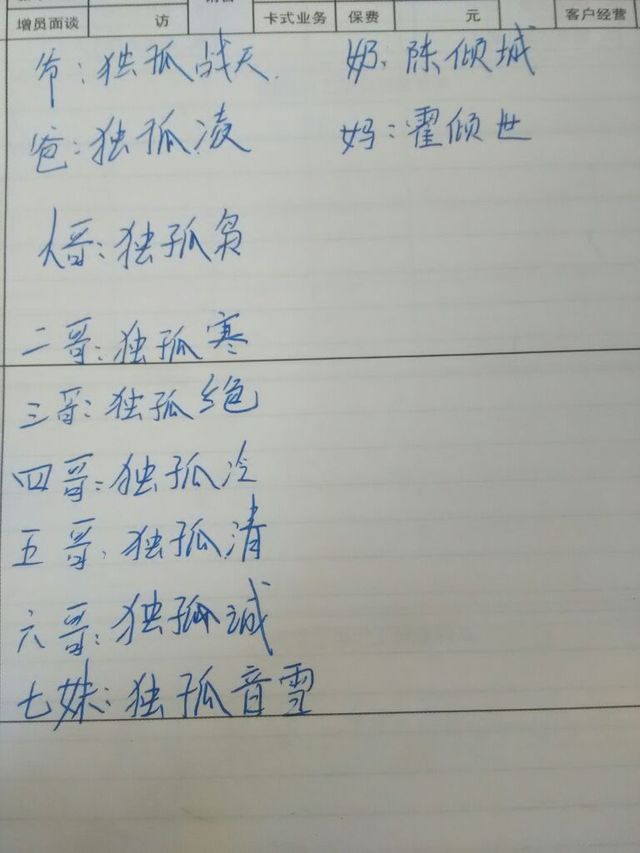 增员面谈 访 卡式业务 保费 元 客户经营
爷:独孤战天. 奶.陈倾城
爸:独孤凌 妈:霍倾世
大哥:独孤枭
二哥:独孤寒
三哥:独孤绝
四哥:独孤冷
五哥.独孤清
六哥:独孤诚
七妹:独孤音雪